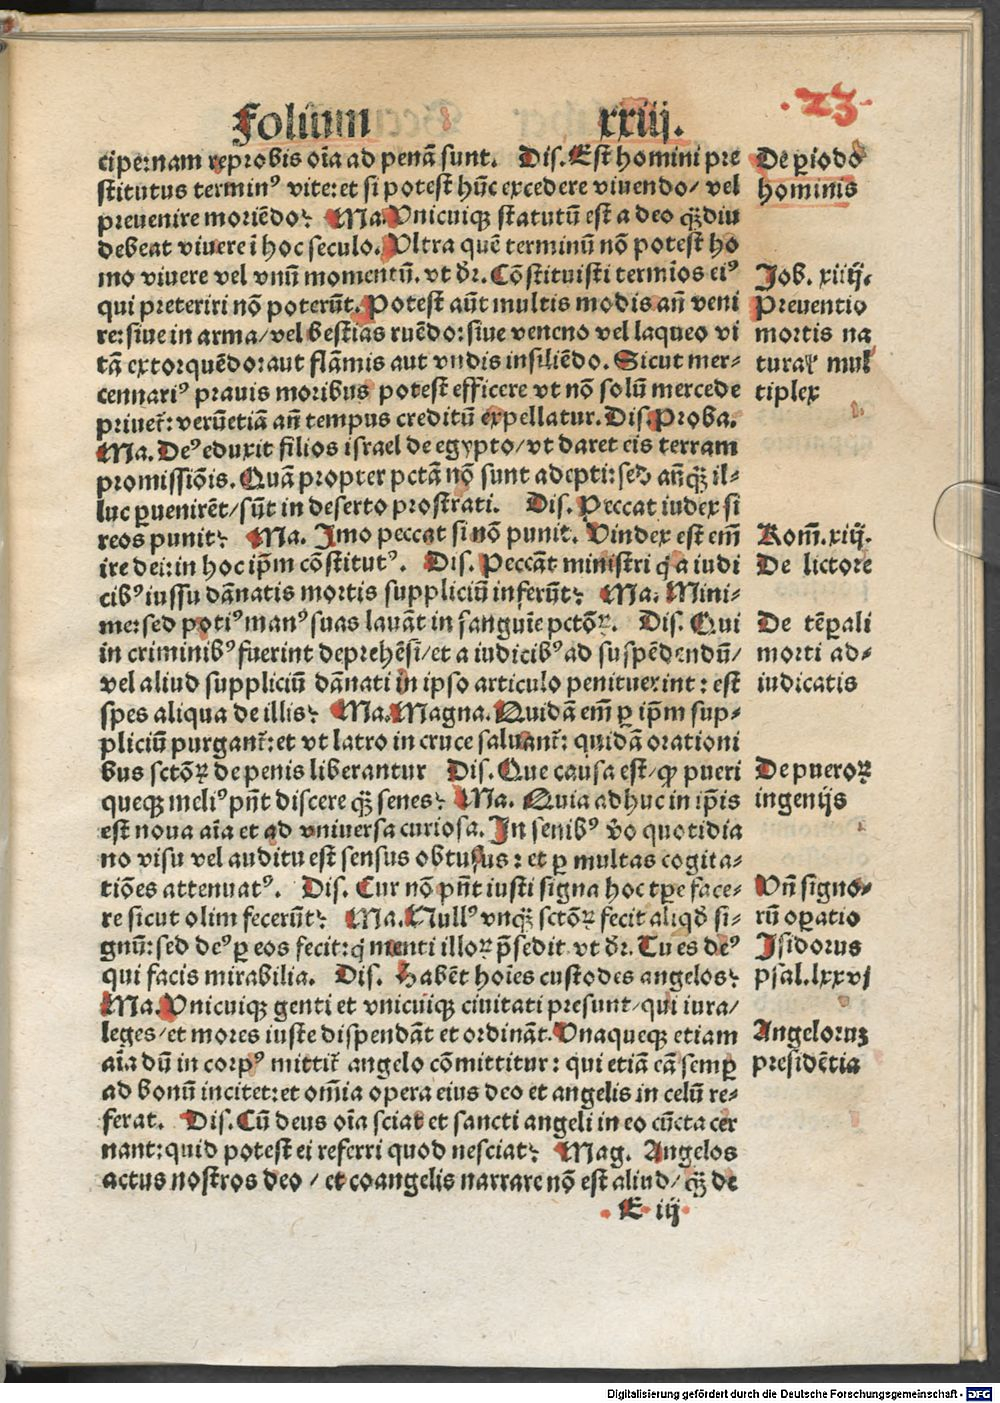 Folium xxiij.
·23·
cipe: nam reprobis oi͞a ad penā sunt. Dis. Est homini pre
stitutus terminꝰ vite: et si potest hūc excedere viuendo/ vel
preuenire moriēdo: Ma. Vnicuiqꝫ statutū est a deo qꝫ̄diu
debeat viuere ī hoc seculo. Vltra quē terminū nō potest ho
mo viuere vel vnū momentū. vt dr̄. Cōstituisti termīos eiꝰ
qui preteriri nō poterūt. Potest aūt multis modis añ veni
re: siue in arma/ vel bestias ruēdo: siue veneno vel laqueo vi
tā extorquēdo: aut flāmis aut vndis insiliēdo. Sicut mer-
cennariꝰ prauis moribus potest efficere vt nō solū mercede
priuet̄: verūetiā añ tempus creditū expellatur. Dis. Proba.
Ma. Deꝰ eduxit filios israel de egypto/ vt daret eis terram
promissiōis. Quā propter pctā nō sunt adepti: sed añqꝫ̄ il-
luc ꝑuenirēt/ sūt in deserto prostrati. Dis. Peccat iudex si
reos punit: Ma. Imo peccat si nō punit. Vindex est em̄
ire dei: in hoc ip̄m cōstitutꝰ. Dis. Peccāt ministri q̄ a iudi
cibꝰ iussu dānatis mortis suppliciū inferūt: Ma. Mini-
me: sed potiꝰ manꝰ suas lauāt in sanguīe pctōꝝ. Dis. Qui
in criminibꝰ fuerint deprehēsi/ et a iudicibꝰ ad suspēdendū/
vel aliud suppliciū dānati in ipso articulo penituerint: est
spes aliqua de illis: Ma. Magna. Quidā em̄ ꝑ ip̄m sup-
pliciū purgant̄: et vt latro in cruce saluant̄: quidā orationi
bus sctōꝝ de penis liberantur Dis. Que causa est/ ꝙ pueri
queqꝫ meliꝰ pn̄t discere qꝫ̄ senes: Ma. Quia adhuc in ip̄is
est noua aīa et ad vniuersa curiosa. In senibꝰ v̄o quotidia
no visu vel auditu est sensus obtusus: et ꝑ multas cogita-
tiōes attenuatꝰ. Dis. Cur nō pn̄t iusti signa hoc tp̄e face-
re sicut olim fecerūt: Ma. Nullꝰ vnqꝫ̄ sctōꝝ fecit aliqd̄ si-
gnū: sed deꝰ ꝑ eos fecit: q̄ menti illoꝝ p̄sedit vt dr̄. Tu es deꝰ
qui facis mirabilia. Dis. Habēt hoīes custodes angelos:
Ma. Vnicuiqꝫ genti et vnicūiqꝫ ciuitati presunt/ qui iura/
leges/ et mores iuste dispendāt et ordināt. Vnaqueqꝫ etiam
aīa dū in corpꝰ mittit̄ angelo cōmittitur: qui etiā eā semꝑ
ad bonū incitet: et om̄ia opera eius deo et angelis in celū re-
ferat. Dis. Cū deus oīa sciat et sancti angeli in eo cūcta cer
nant: quid potest ei referri quod nesciat: Mag. Angelos
actus nostros deo / et coangelis narrare nō est aliud/ qꝫ̄ de
E iij
De ꝑiodo
hominis
Job. xiiij.
Preuentio
mortis na
turaꝝ mul
tiplex
Rom̄. xiij.
De lictore
De tēꝑali
morti ad-
iudicatis
De pueroꝝ
ingenijs
Vn̄ signo-
rū oꝑatio
Isidorus
psal. lxxvj
Angeloruꝫ
presidētia
Digitalisierung gefördert durch die Deutsche Forschungsgemeinschaft - DFG